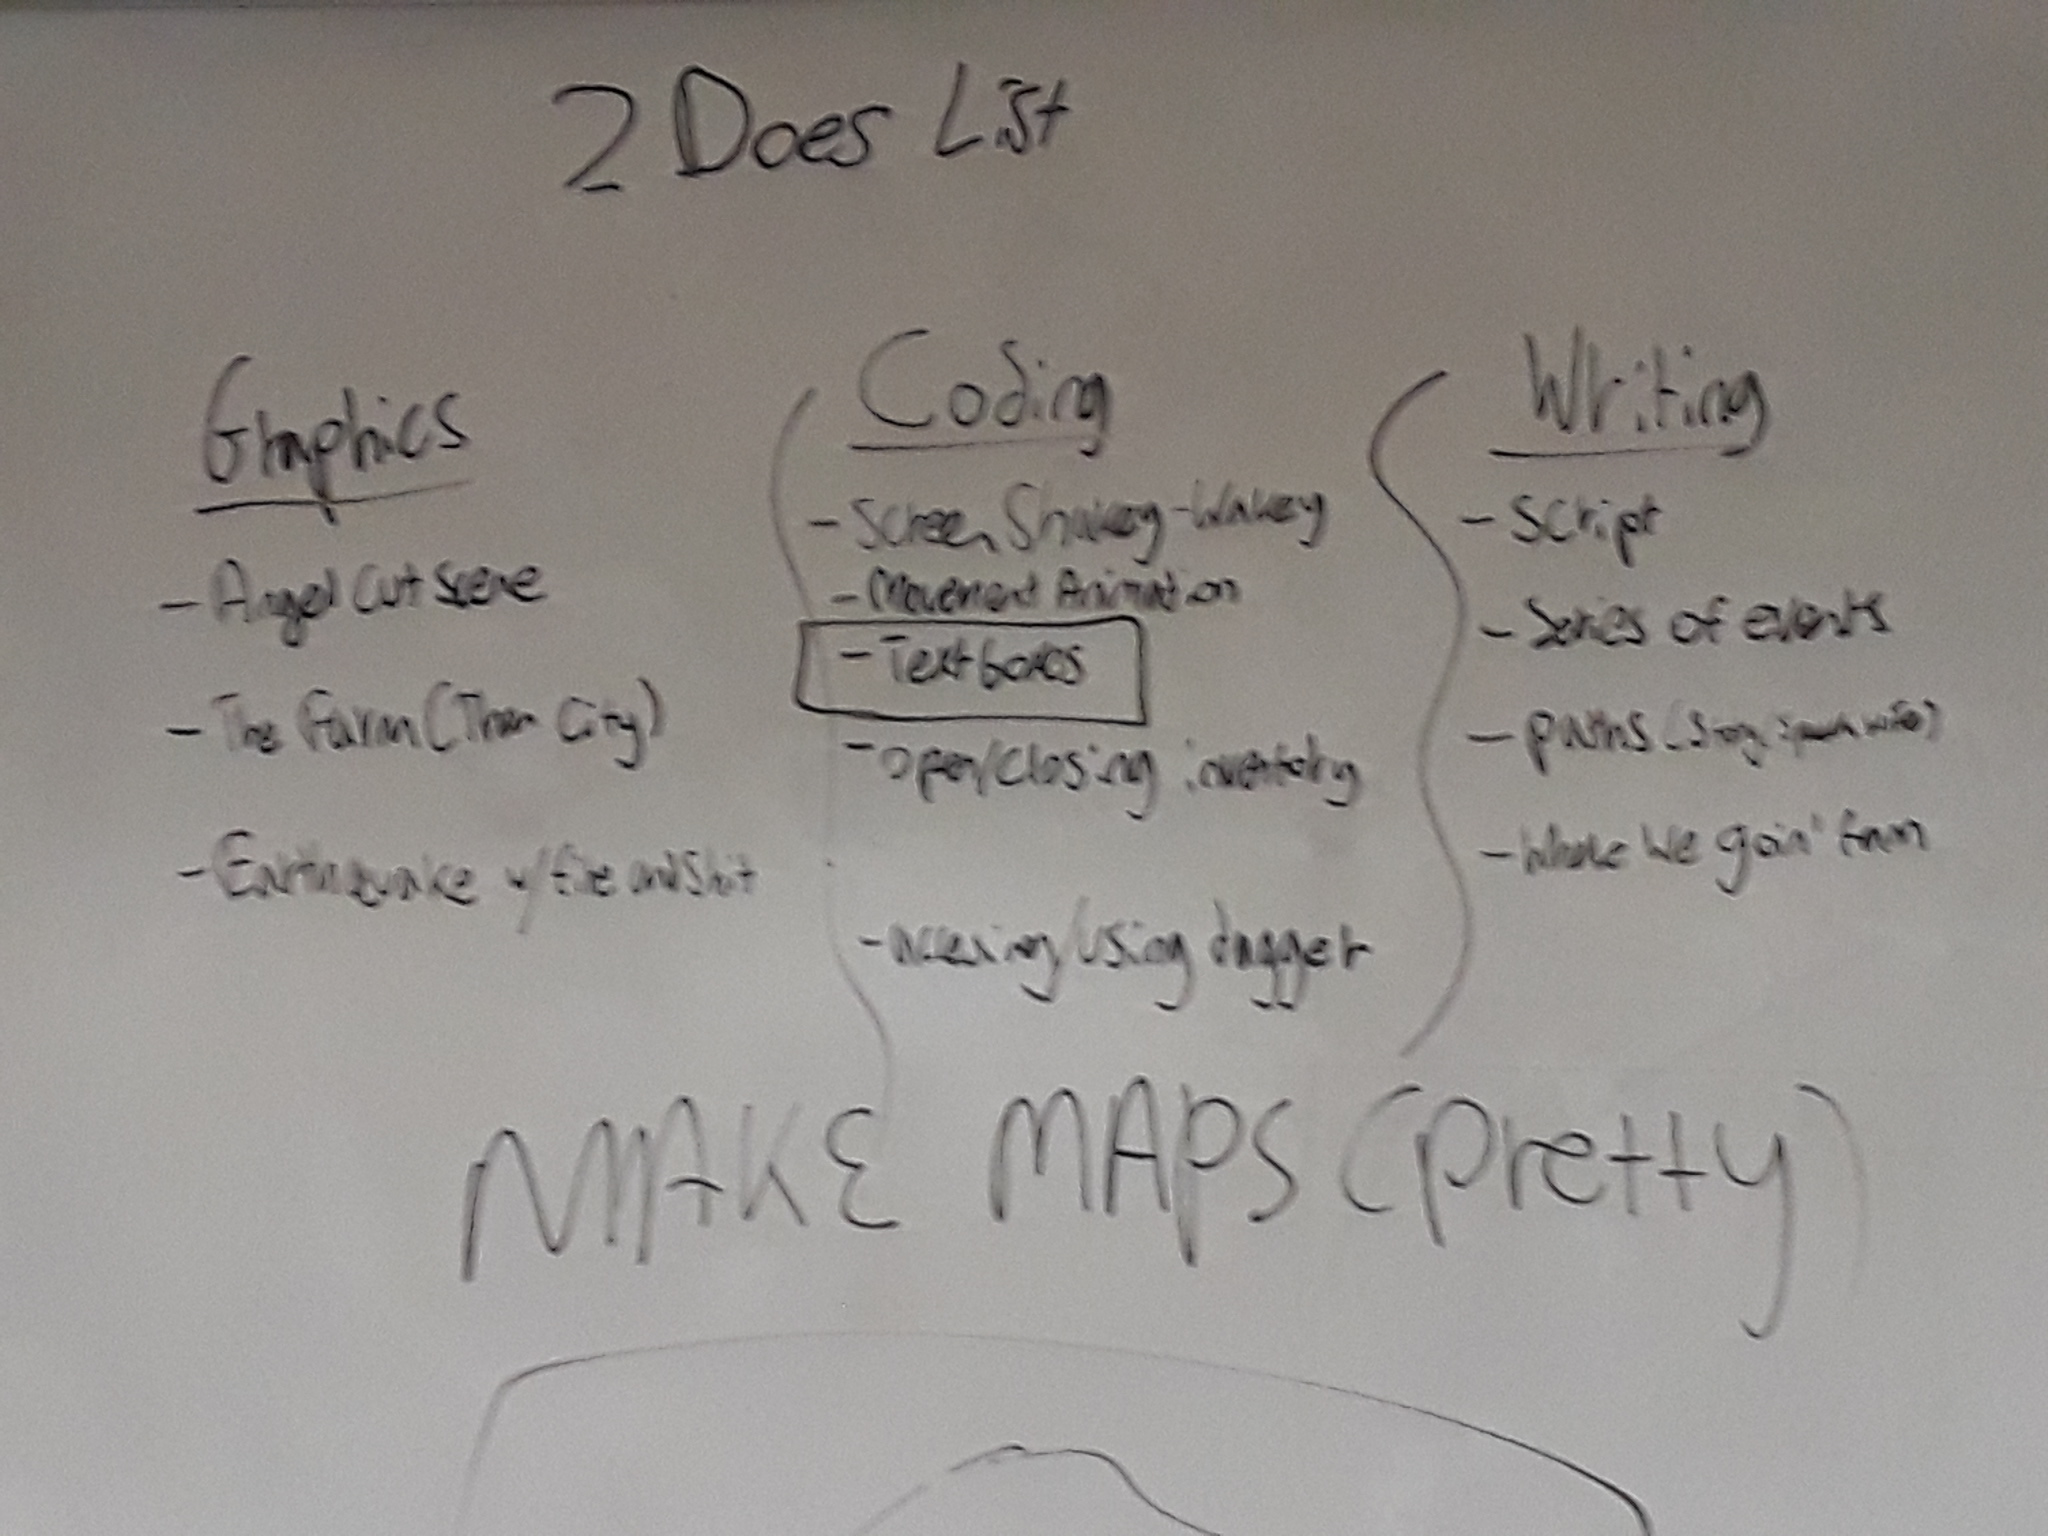 2 Does List
Graphics
- Angel Cut Scene
- The Farm (Then City)
- Earthquake w/ fire and Shit
Coding
- Screen Shakey-Wakey
- Movement Animation
- Text boxes
- open/closing inventory
- using dagger
Writing
- Script
- Series of events
- paths (Story,
- We goin'
MAKE MAPS (pretty)